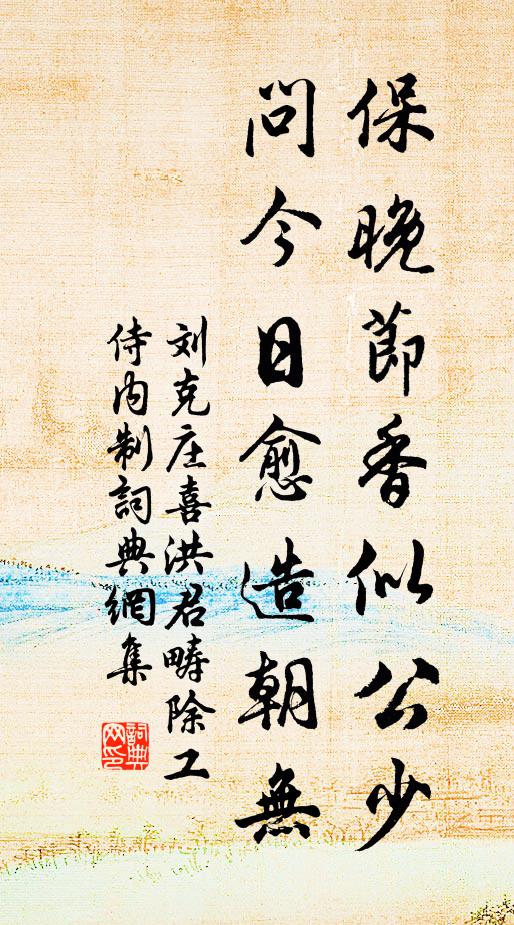 保晚節香似公少
問今日愈造朝無
刘克庄喜洪君疇除工
侍内制詞典網集
詞典网印